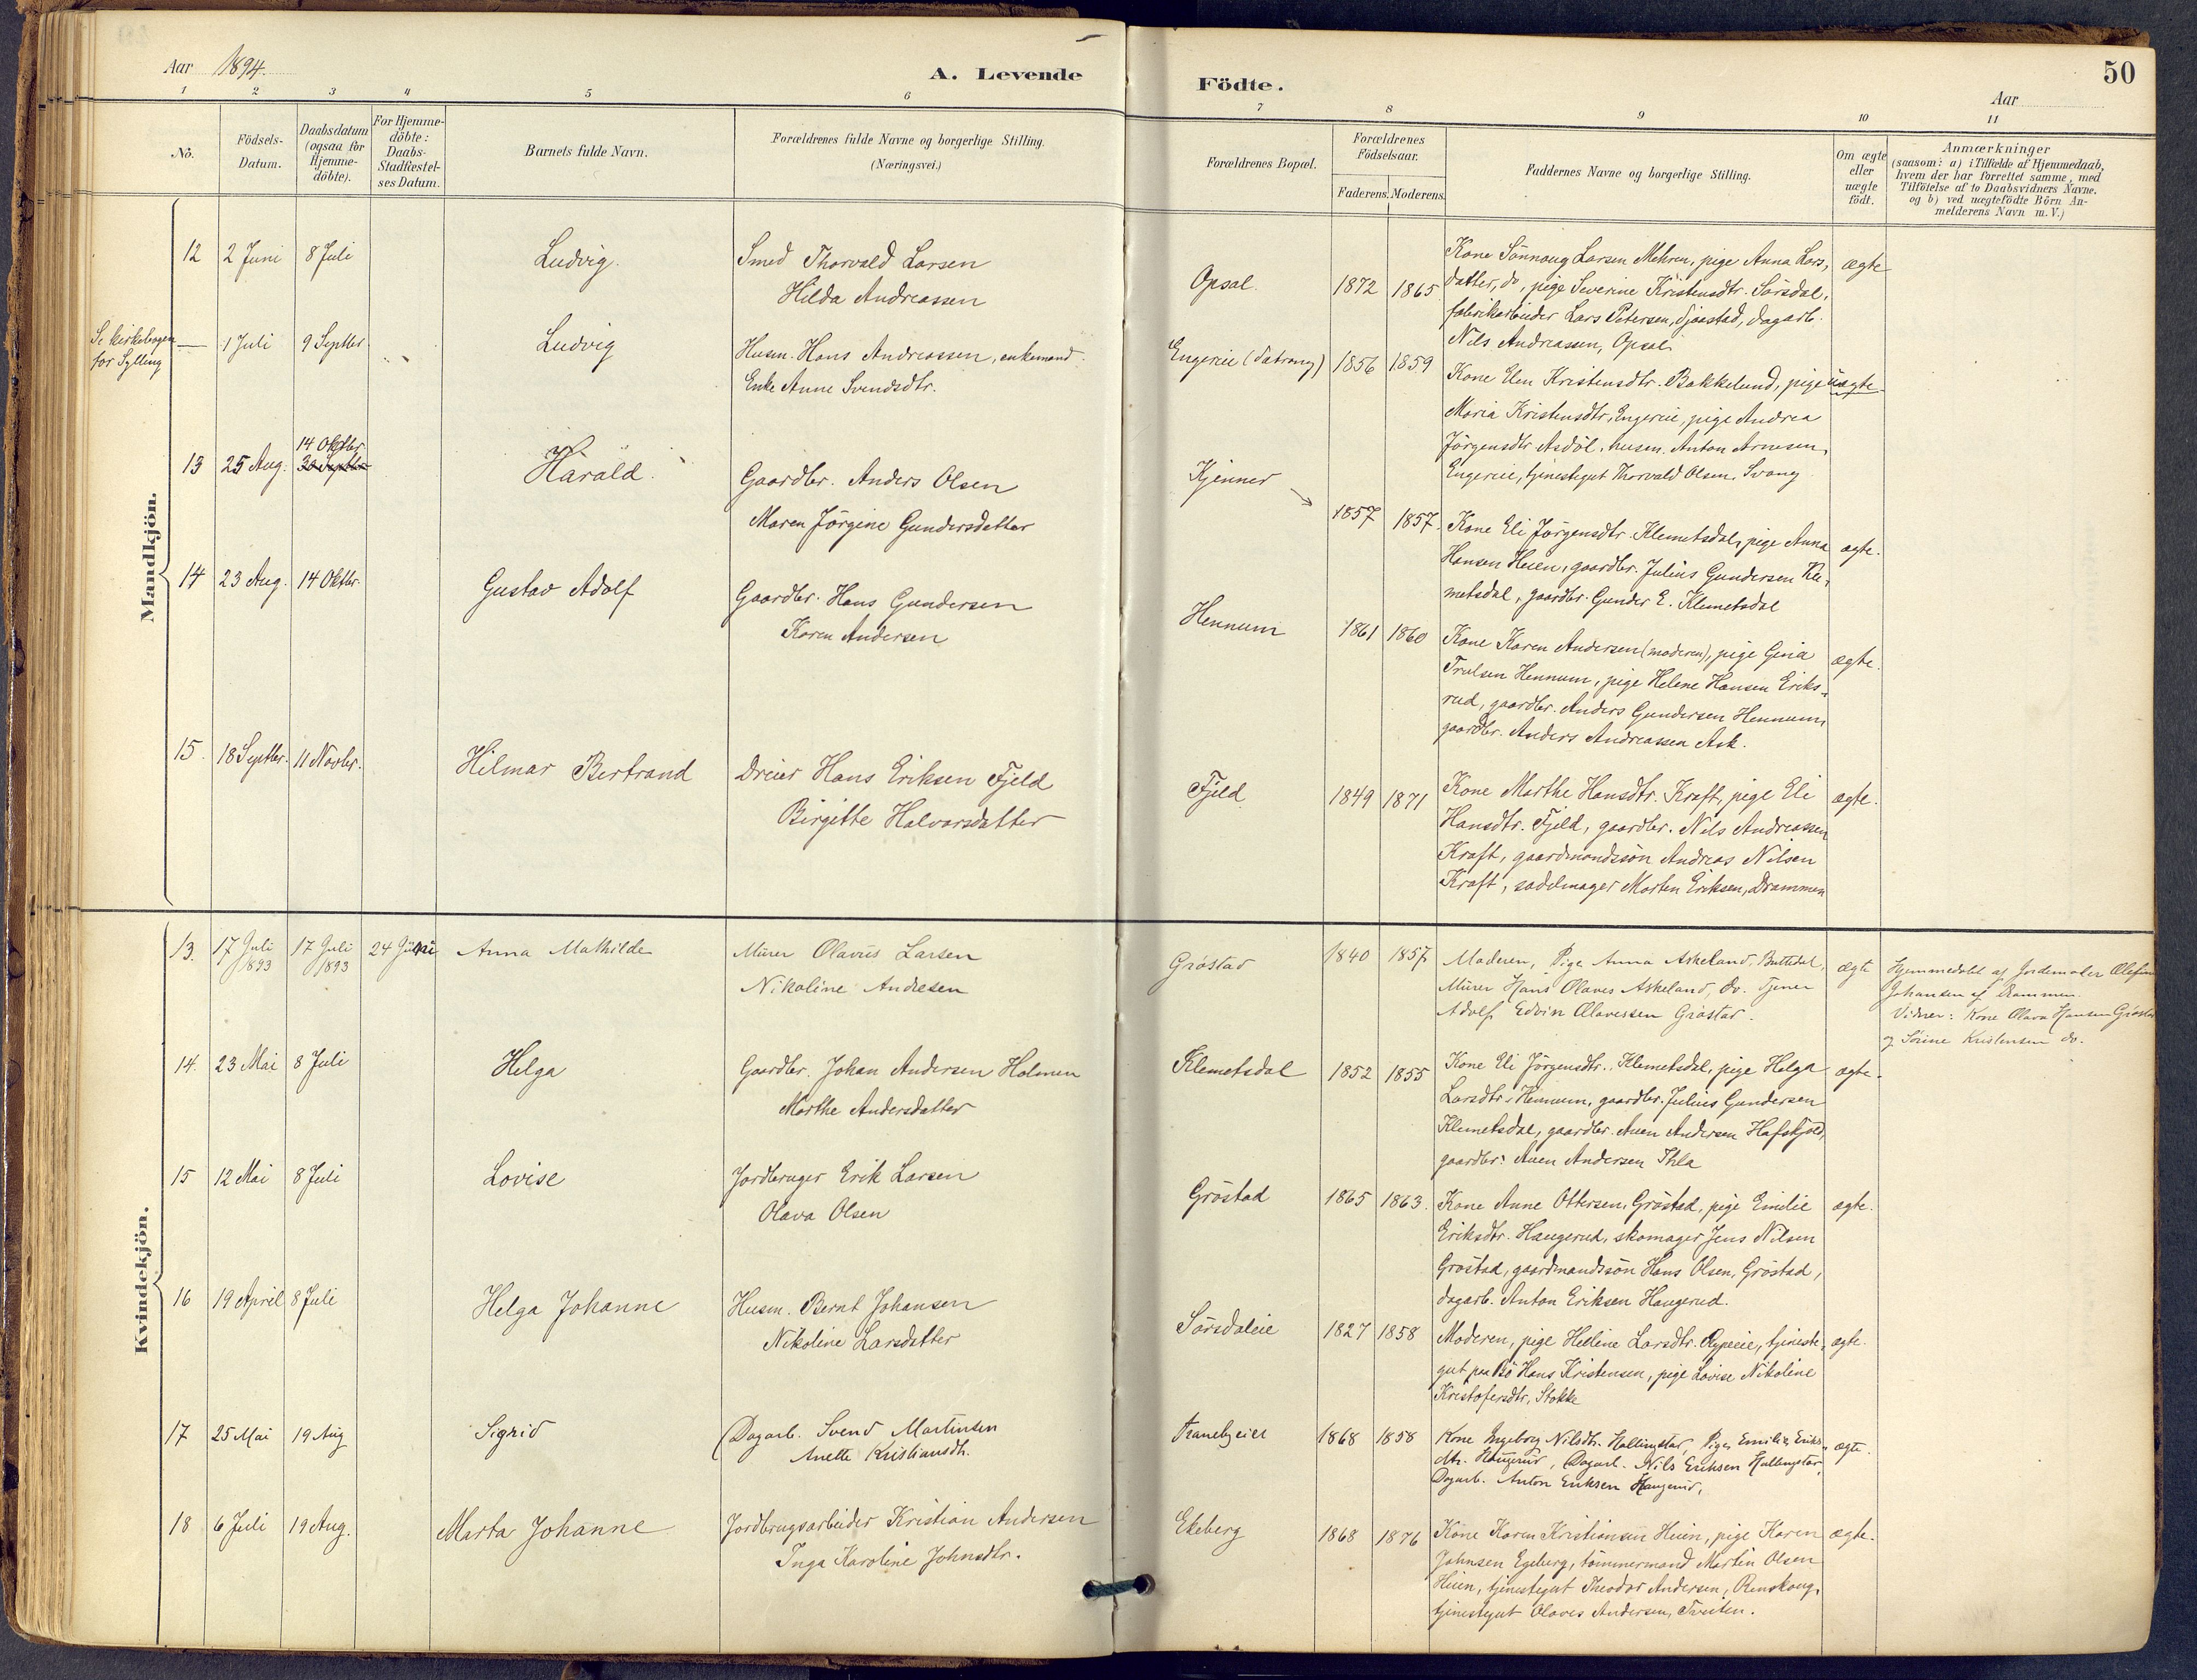 Aar 1894.
A. Levende
Födte.
50
Aar
1 2 3 4 5 6 7 8 9 10 11
No.
Födsels-Datum.
Daabsdatum (ogsaa for Hjemme-döbte).
For Hjemme-döbte: Daabs-Stadfæstel-ses Datum.
Barnets fulde Navn.
Forældrenes fulde Navne og borgerlige Stilling.
(Næringsvei.)
Forældrenes Bopæl.
Forældrenes Födselsaar.
Faderens. Moderens.
Faddernes Navne og borgerlige Stilling.
Om ægte eller uægte födt.
Anmærkninger
(saasom: a) i Tilfælde af Hjemmedaab, hvem der har forrettet samme, med Tilföielse af to Daabsvidners Navne. og b) ved uægtefödte Börn An-melderens Navn m.V.)
Mandkjön.
12 2 Juni 8 Juli Ludvig. Smed Thorvald Larsen
Hilda Andreassen
Opsal. 1872 1865
Kone Sønnaug Larsen Mehren, pige Anna Lars,
datter, do, pige Severine Kristensdtr. Sørsdal,
fabrikarbeider Lars Petersen, Gjaastad, dagarb.
Nils Andreassen, Opsal.
ægte
Se kirkebogen
for Sylling
— 1 Juli 9 Septbr. Ludvig Husm. Hans Andreassen, enkemand.
Enke Anne Svendsdtr.
Engereie 1856 1859
Kone Elen Kristensdtr. Bakkelund, pige
Maria Kristensdtr, Engereie, pige Andrea
Jörgensdtr Asdöl, husm. Anton Arnesen,
Engereie, tjenestegut Thorvald Olsen, Svang
uægte
13 25 Aug. 14 Oktbr. 30 Septbr Harald. Gaardbr. Anders Olsen
Maren Jörgine Gundersdatter
Kjenner 1857 1857.
Kone Eli Jörgensdtr. Klemetsdal, pige Anna
Hansen Huen, gaardbr. Julius Gundersen Kle,
metsdal, gaardbr. Gunder E. Klemetsdal
ægte.
14 23 Aug. 14 Oktbr. Gustav Adolf Gaardbr. Hans Gundersen
Karen Andersen
Hennum 1861 1860
Kone Karen Andersen (moderen), pige Gina
Trulsen Hennum, pige Helene Hansen Eriks-
rud, gaardbr. Anders Gundersen Hennum,
gaardbr. Anders Andreassen Ask.
ægte.
15. 18 Septbr. 11 Novbr. Hilmar Bertrand Dreier Hans Eriksen Fjeld
Birgitte Halvorsdatter
Fjeld. 1849 1871
Kone Marthe Hansdtr. Kraft, pige Eli
Hansdtr. Fjeld, gaardbr. Nils Andreassen
Kraft, gaardmandssön Andreas Nilsen
Kraft, sadelmager Morten Eriksen, Drammen
ægte.
Kvindekjön.
13. 17 Juli 1893 17 Juli 1893 24 Juni Anna Mathilde Murer Olavus Larsen
Nikoline Andresen
Grøstad 1840 1857
Moderen, Pige Anna Askeland,
Murer Hans Olaves Askeland, do. Tjener
Adolf Edvin Olavessen Grøstad.
ægte
Hjemmedøbt af Jordemoder
Johansen af Drammen.
Vidner: Kone Olava Hansen Grøstad
og Sørine Kristensen do.
14. 23 Mai 8 Juli Helga Gaardbr. Johan Andersen Holmen
Marthe Andersdatter
Klemetsdal 1852 1855
Kone Eli Jörgensdtr., Klemetsdal, pige Helga
Larsdtr. Hennum, gaardbr. Julius Gundersen
Klemetsdal, gaardbr. Auen Andersen Hafskjold,
gaardbr. Auen Andersen Thla
ægte.
15 12 Mai 8 Juli Lovise Jordbruger Erik Larsen
Olava Olsen
Gröstad 1865 1863.
Kone Anne Ottersen, Gröstad, pige Emilie
Eriksdtr. Haugerud, skomager Jens Nilsen
Gröstad, gaardmandssön Hans Olsen, Gröstad,
dagarb. Anton Eriksen Haugerud.
ægte.
16 19 April 8 Juli Helga Johanne Husm. Bernt Johansen
Nikoline Larsdatter
Sørsdaleie 1827 1858
Moderen, pige Helline Larsdtr. Rypeeie, tjeneste,
gut paa Bö Hans Kristensen, pige Lovise Nikoline
Kristofersdtr, Stokke
ægte.
17 25 Mai 19 Aug Sigrid Dagarb. Svend Martinsen
Anette Kristiansdtr.
Tranebyeier 1868 1858
Kone Ingeborg Nilsdtr. Hallingstad, Pige Emilie Eriks-
dtr. Haugerud, Dagarb. Nils Eriksen Hallingstad,
Dagarb. Anton Eriksen Haugerud.
ægte.
18 6 Juli 19 Aug. Marta Johanne Jordbrugsarbeider Kristian Andersen
Inga Karoline Johnsdtr.
Ekeberg 1868 1876
Kone Karen Kristiansen Huen, pige Karen
Johnsen Egeberg, tömmermand Martin Olsen
Huen, tjenestegut Theodor Andersen, Renskaug,
tjenestegut Olaves Andersen, Tveiten.
ægte.